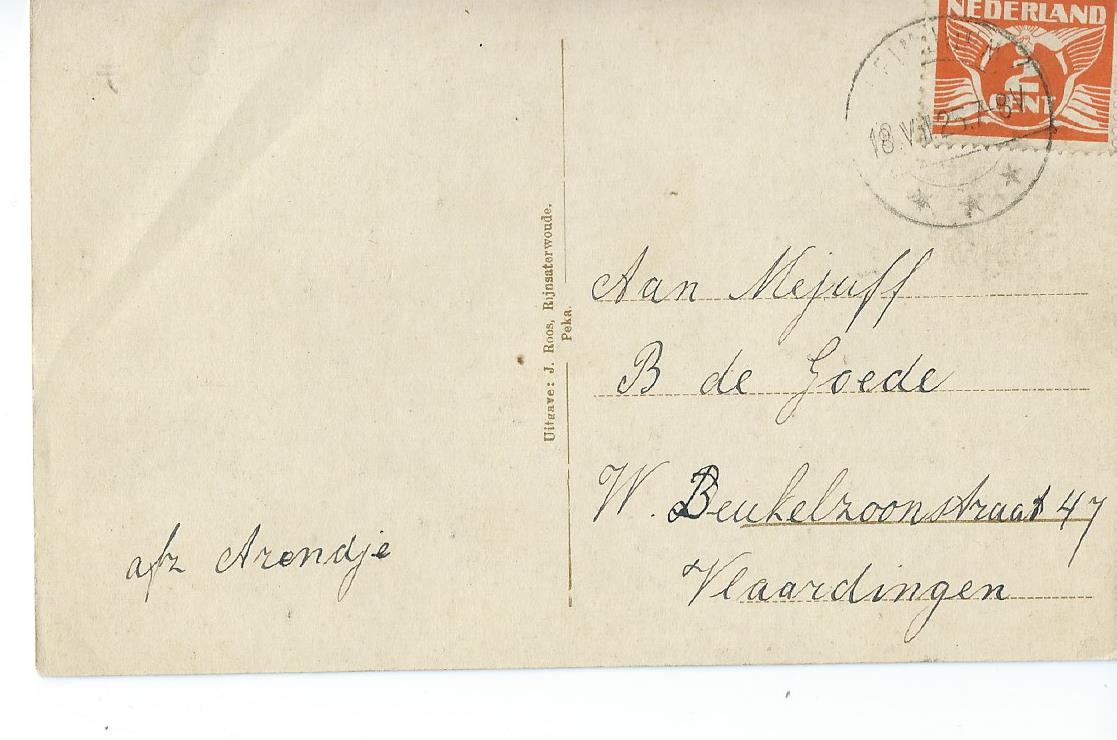 NEDERLAND
2
CENT
18.VII.25.7-8V
Uitgave: J. Roos, Rijnsaterwoude.
Peka.
Aan Mejuff
B de Goede
W. Beukelzoonstraat 47
Vlaardingen
afz Arendje